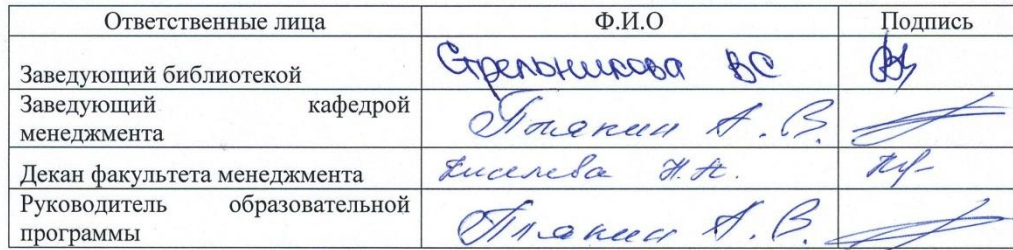 Ответственные лица Ф.И.О Подпись
Заведующий библиотекой Стрельникова ВС
Заведующий кафедрой
менеджмента Плакин А. В.
Декан факультета менеджмента Киселева Н.Н.
Руководитель образовательной
программы Плакин А. В.